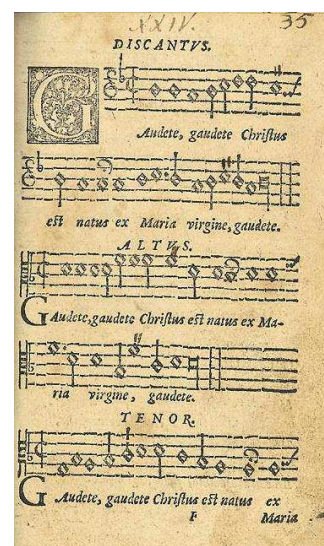 XXIV.
35
DISCANTVS.
GAudete, gaudete Chriſtus
eſt natus ex Maria virgine, gaudete.
ALTVS.
GAudete, gaudete Chriſtus eſt natus ex Ma-
ria virgine, gaudete.
TENOR.
GAudete, gaudete Chriſtus eſt natus ex
F Maria